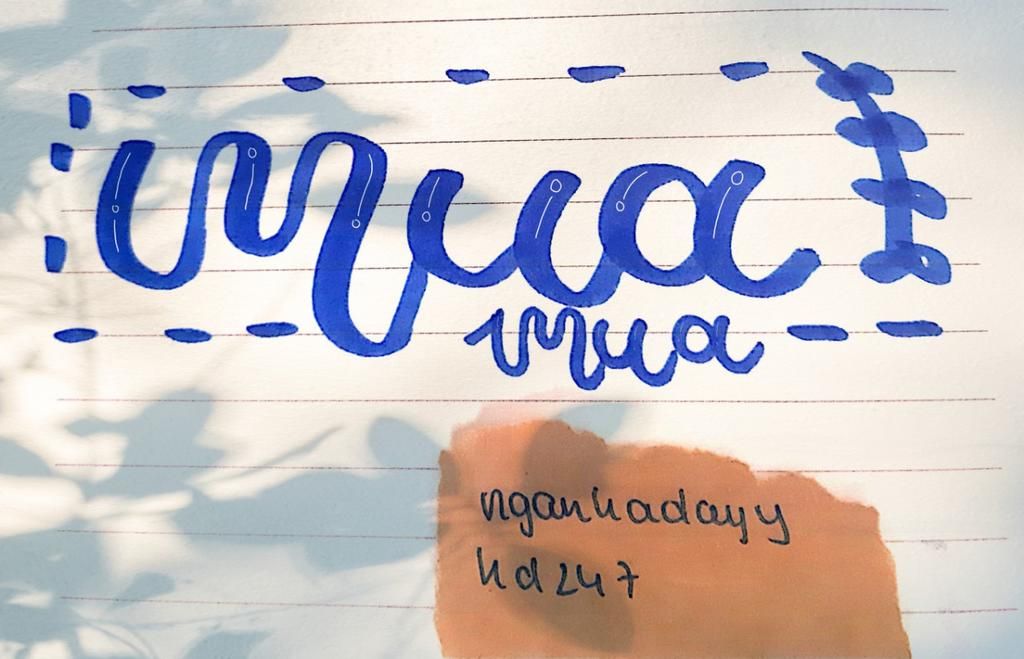 mua
mua
nganhadayy
hd247